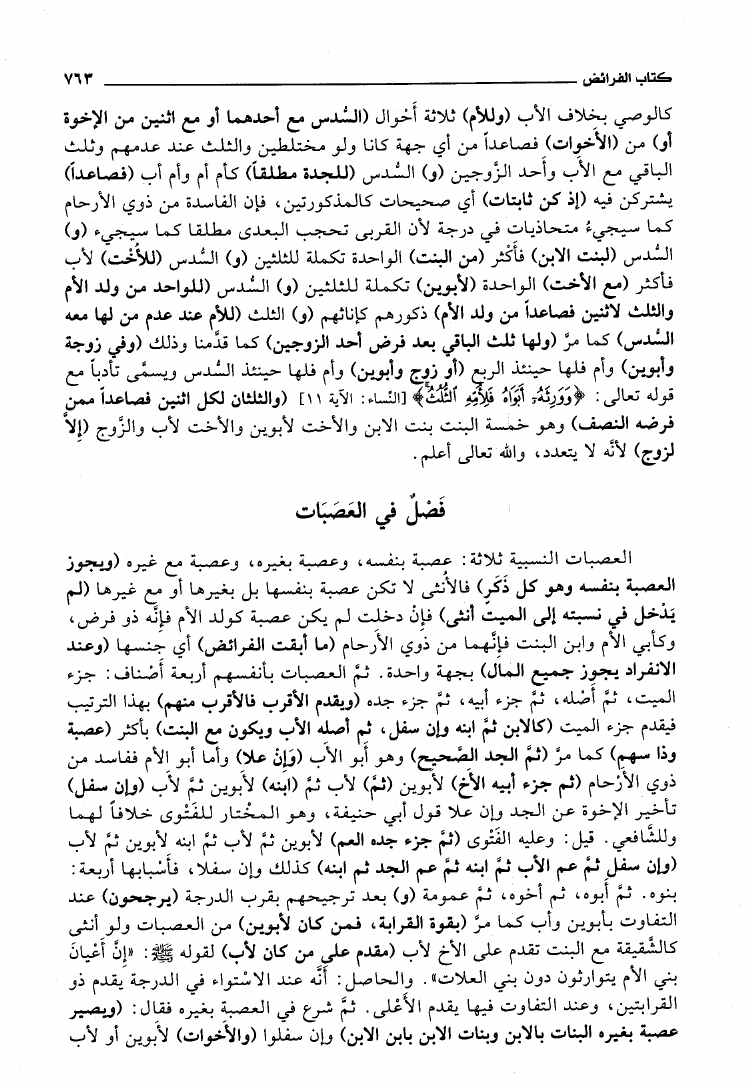 كتاب الفرائض ــــــــــــــــــــــــــــــــــــــــ ٧٦٣
كالوصي بخلاف الأب (وللأم) ثلاثة أَحْوال (السُّدس مع أحدهما أو مع اثنين من الإخوة
أو) من (الأخوات) فصاعداً من أي جهة كانا ولو مختلطين والثلث عند عدمهم وثلث
الباقي مع الأب وأحد الزَّوجين (و) السُّدس (للجدة مطلقاً) كأم أم وأم أب (فصاعداً)
يشتركن فيه (إذ كن ثابتات) أي صحيحات كالمذكورتين، فإن الفاسدة من ذوي الأرحام
كما سيجيءُ متحاذيات في درجة لأن القربى تحجب البعدى مطلقا كما سيجيء (و)
السُّدس (لبنت الابن) فأَكْثر (من البنت) الواحدة تكملة للثلثين (و) السُّدس (للأُخْت) لأب
فأكثر (مع الأخت) الواحدة (لأبوين) تكملة للثلثين (و) السُّدس (للواحد من ولد الأم
والثلث لاثنين فصاعداً من ولد الأم) ذكورهم كإناثهم (و) الثلث (للأم عند عدم من لها معه
السُّدس) كما مرَّ (ولها ثلث الباقي بعد فرض أحد الزوجين) كما قدَّمنا وذلك (وفي زوجة
وأبوين) وأم فلها حينئذ الربع (أو زوج وأبوين) وأم فلها حينئذ السُّدس ويسمَّى تأدباً مع
قوله تعالى: ﴿وَوَرِثَهُۥ أَبَوَاهُ فَلِأُمِّهِ ٱلثُّلُثُۚ﴾ [النِّساء: الآية ١١] (والثلثان لكل اثنين فصاعداً ممن
فرضه النصف) وهو خمسة البنت بنت الابن والأخت لأبوين والأخت لأب والزَّوج (إلاَّ
لزوج) لأنَّه لا يتعدد، والله تعالى أعلم.
فَصْلٌ في العَصَبَات
العصبات النسبية ثلاثة: عصبة بنفسه، وعصبة بغيره، وعصبة مع غيره (ويجوز
العصبة بنفسه وهو كل ذَكَرٍ) فالأُنثى لا تكن عصبة بنفسها بل بغيرها أو مع غيرها (لم
يَدْخل في نسبته إلى الميت أنثى) فإنْ دخلت لم يكن عصبة كولد الأم فإنَّه ذو فرض،
وكأبي الأم وابن البنت فإنَّهما من ذوي الأرحام (ما أبقت الفرائض) أي جنسها (وعند
الانفراد يجوز جميع المال) بجهة واحدة. ثمَّ العصبات بأنفسهم أربعة أَصْناف: جزء
الميت، ثمَّ أَصْله، ثمَّ جزء أبيه، ثمَّ جزء جده (ويقدم الأقرب فالأقرب منهم) بهذا الترتيب
فيقدم جزء الميت (كالابن ثمَّ ابنه وإن سفل، ثم أصله الأب ويكون مع البنت) بأكثر (عصبة
وذا سهم) كما مرَّ (ثمَّ الجد الصَّحيح) وهو أَبو الأب (وَإنْ علا) وأما أبو الأم ففاسد من
ذوي الأَرْحام (ثم جزء أبيه الأخ) لأبوين (ثمَّ) لأب ثمَّ (ابنه) لأبوين ثمَّ لأب (وإن سفل)
تأخير الإخوة عن الجد وإن علا قول أبي حنيفة، وهو المختار للفَتْوى خلافاً لهما
وللشَّافعي. قيل: وعليه الفَتْوى (ثمَّ جزء جده العم) لأبوين ثمَّ لأب ثمَّ ابنه لأبوين ثمَّ لأب
(وإن سفل ثمَّ عم الأب ثمَّ ابنه ثمَّ عم الجد ثم ابنه) كذلك وإن سفلا، فأَسْبابها أربعة:
بنوه. ثمَّ أبوه، ثم أخوه، ثمَّ عمومة (و) بعد ترجيحهم بقرب الدرجة (يرجحون) عند
التفاوت بأبوين وأب كما مرَّ (بقوة القرابة، فمن كان لأبوين) من العصبات ولو أنثى
كالشَّقيقة مع البنت تقدم على الأخ لأب (مقدم على من كان لأب) لقوله ﷺ: «إِنَّ أَعْيانَ
بني الأم يتوارثون دون بني العلات». والحاصل: أَنَّه عند الاسْتواء في الدرجة يقدم ذو
القرابتين، وعند التفاوت فيها يقدم الأَعْلى. ثمَّ شرع في العصبة بغيره فقال: (ويصير
عصبة بغيره البنات بالابن وبنات الابن بابن الابن) وإن سفلوا (والأخوات) لأبوين أو لأب